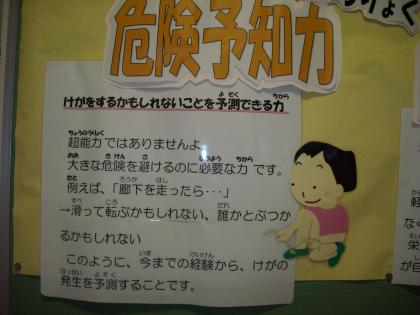 危険予知力
けがをするかもしれないことを予測できる力
超能力ではありませんよ。
大きな危険を避けるのに必要な力です。
例えば、「廊下を走ったら・・・」
→滑って転ぶかもしれない、誰かとぶつか
るかもしれない
このように、今までの経験から、けがの
発生を予測することです。